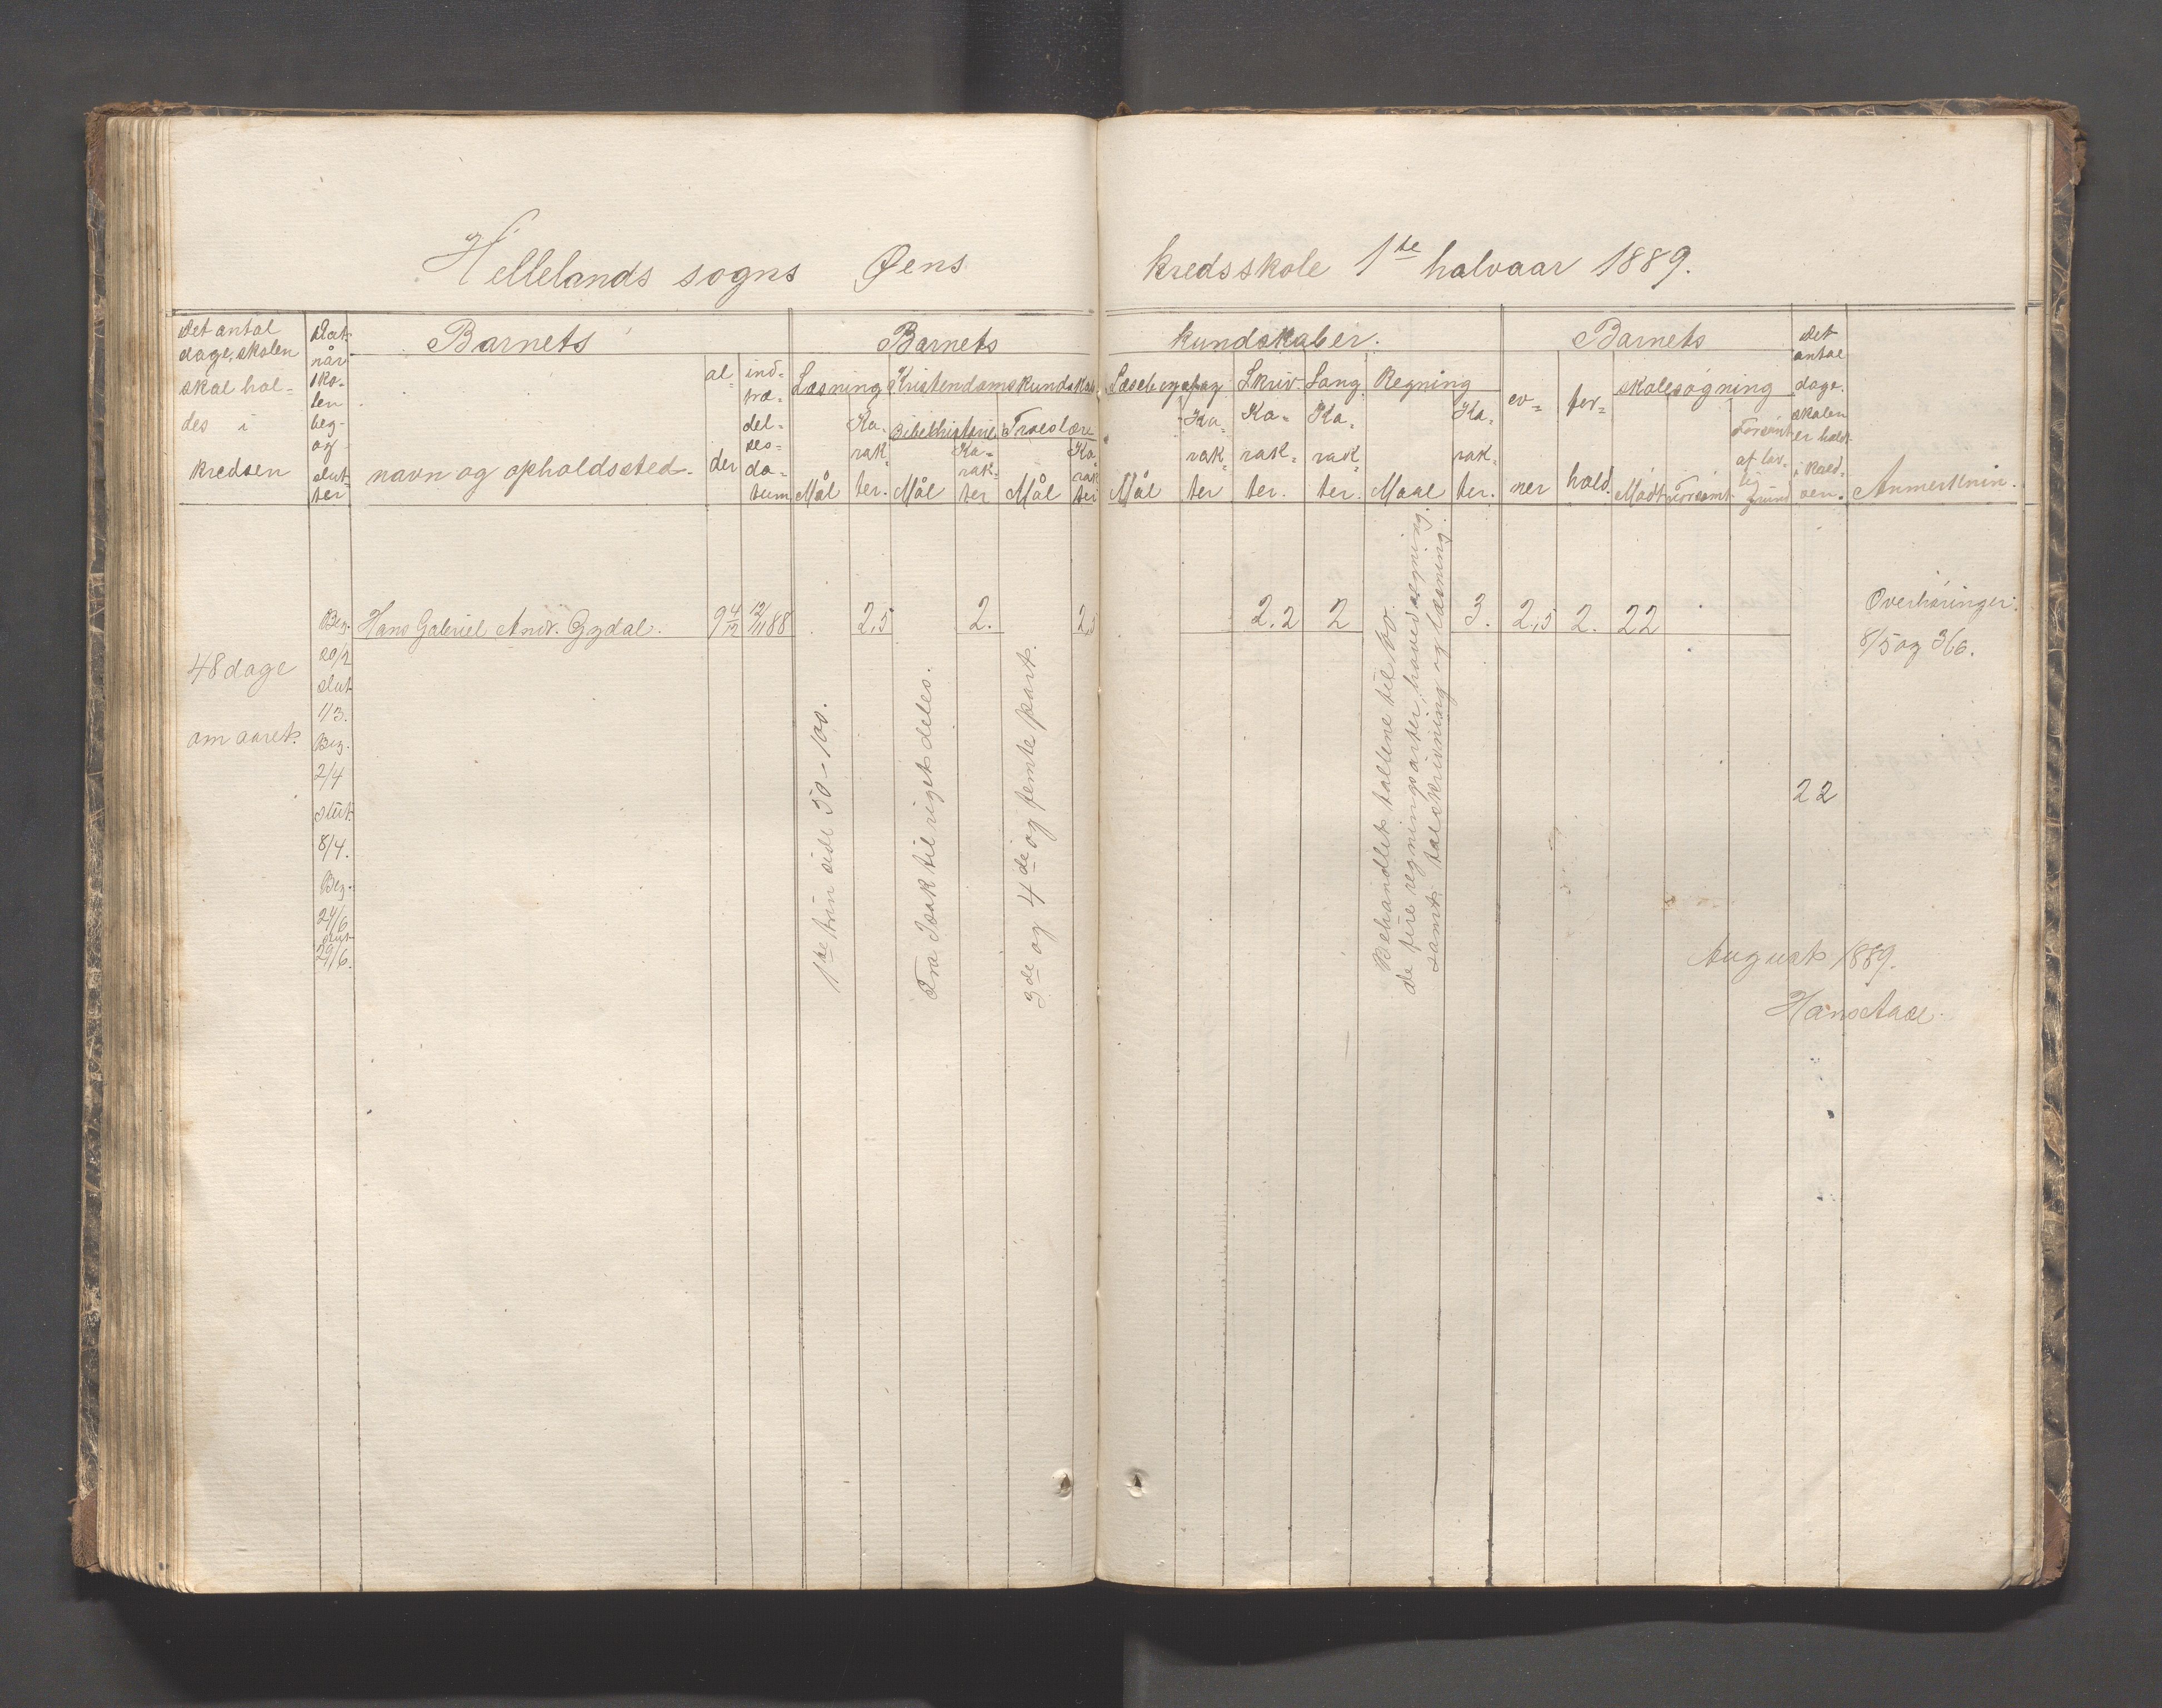 Hellelands sogns Øens kredsskole 1ste halvaar 1889.
Det antal dage, skolen skal holdes i kredsen
Dat. når skolen beg. og slutter
Barnets
navn og opholdssted.
alder
indtrædelsesdatum
Barnets kundskaber.
Læsning
Mål
Karakter.
Kristendomskundskab
Bibelhistorie
Mål
Karakter
Troeslære
Mål
Karakter
Læsebogsfag
Mål
Karakter
Skriv.
Karakter.
Sang
Karakter.
Regning
Maal
Karakter.
Barnets
evner
forhold.
skolesøgning
Mødt
Forsømt
Forsømt af lovlig grund
Det antal dage. skolen er holdt i kredsen.
Anmerknin.
Hans Gabriel Andr. Gydal. 9 4/12 12/11 88 2,5 2. 2,5 2.2 2 3. 2,5 2. 22
48 dage
om aaret.
Beg.
20/2
slut
1/3.
Beg.
2/4
slut
8/4.
Beg.
24/6
slut
29/6.
1ste trin side 50-100.
Fra Isak til rigets deles.
3de og 4de og femte part.
Behandlet tallene til
de fire regningsarter, hovedregning.
samt talskrivning og læsning.
22
Overhøringer:
8/5 og 3/6.
August 1889.
Hans Aase.